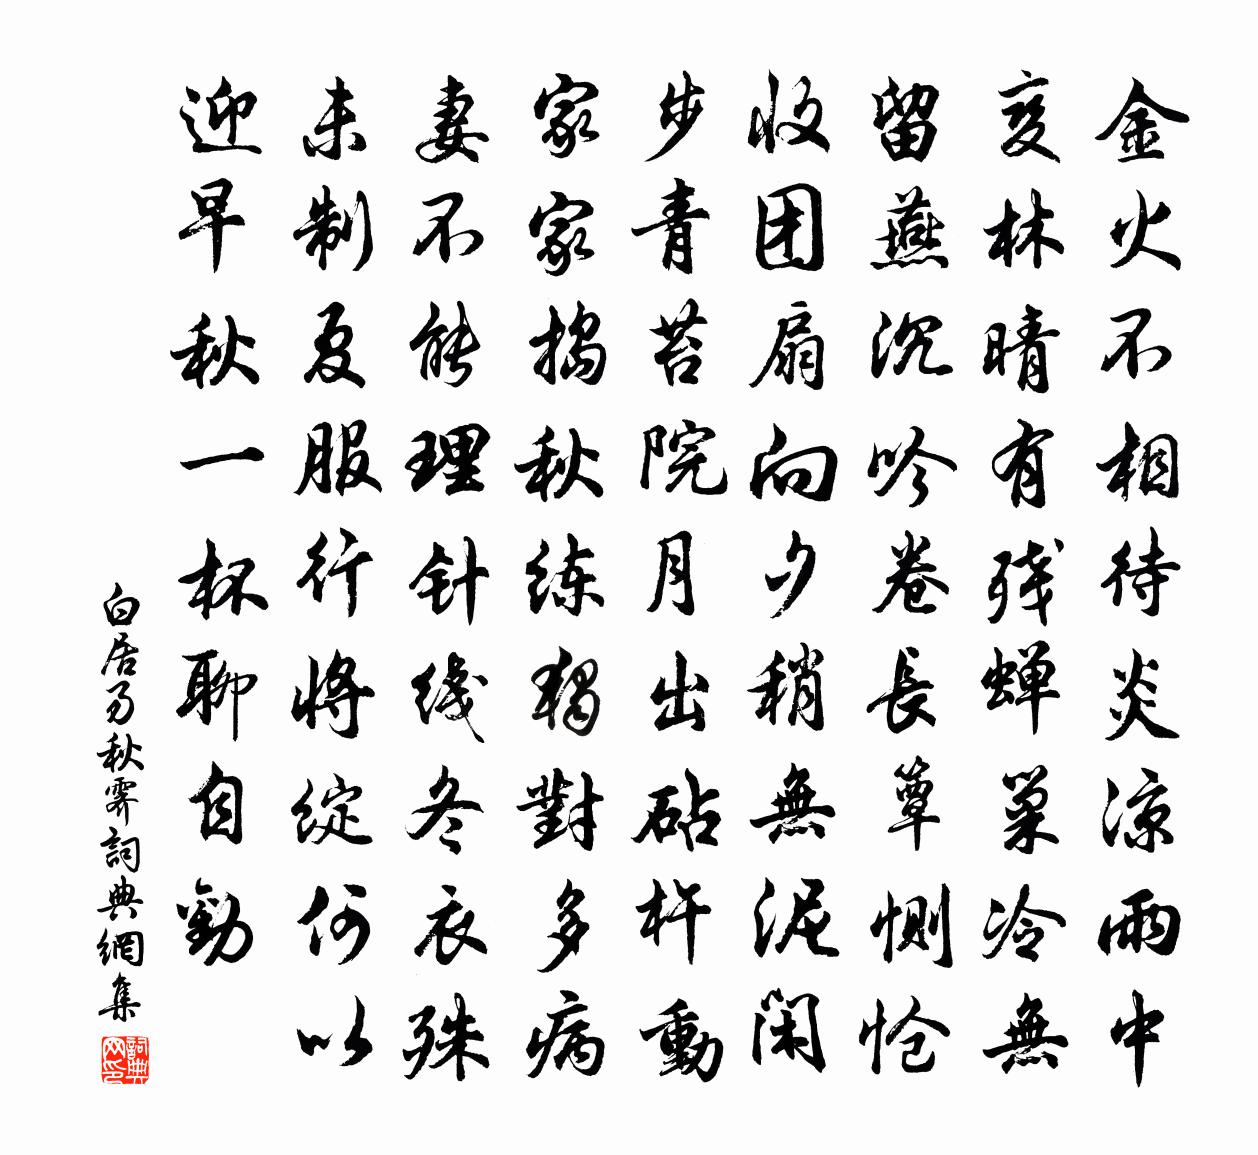 金火不相待炎涼雨中
变林晴有残蝉巢冷無
留燕沉吟卷長簟惻怆
收团扇向夕稍無泥闲
步青苔院月出砧杵動
家家捣秋练独對多病
妻不能理针线冬衣殊
未制夏服行将绽何以
迎早秋一杯聊自勸
白居易秋霽詞典網集
詞典网印